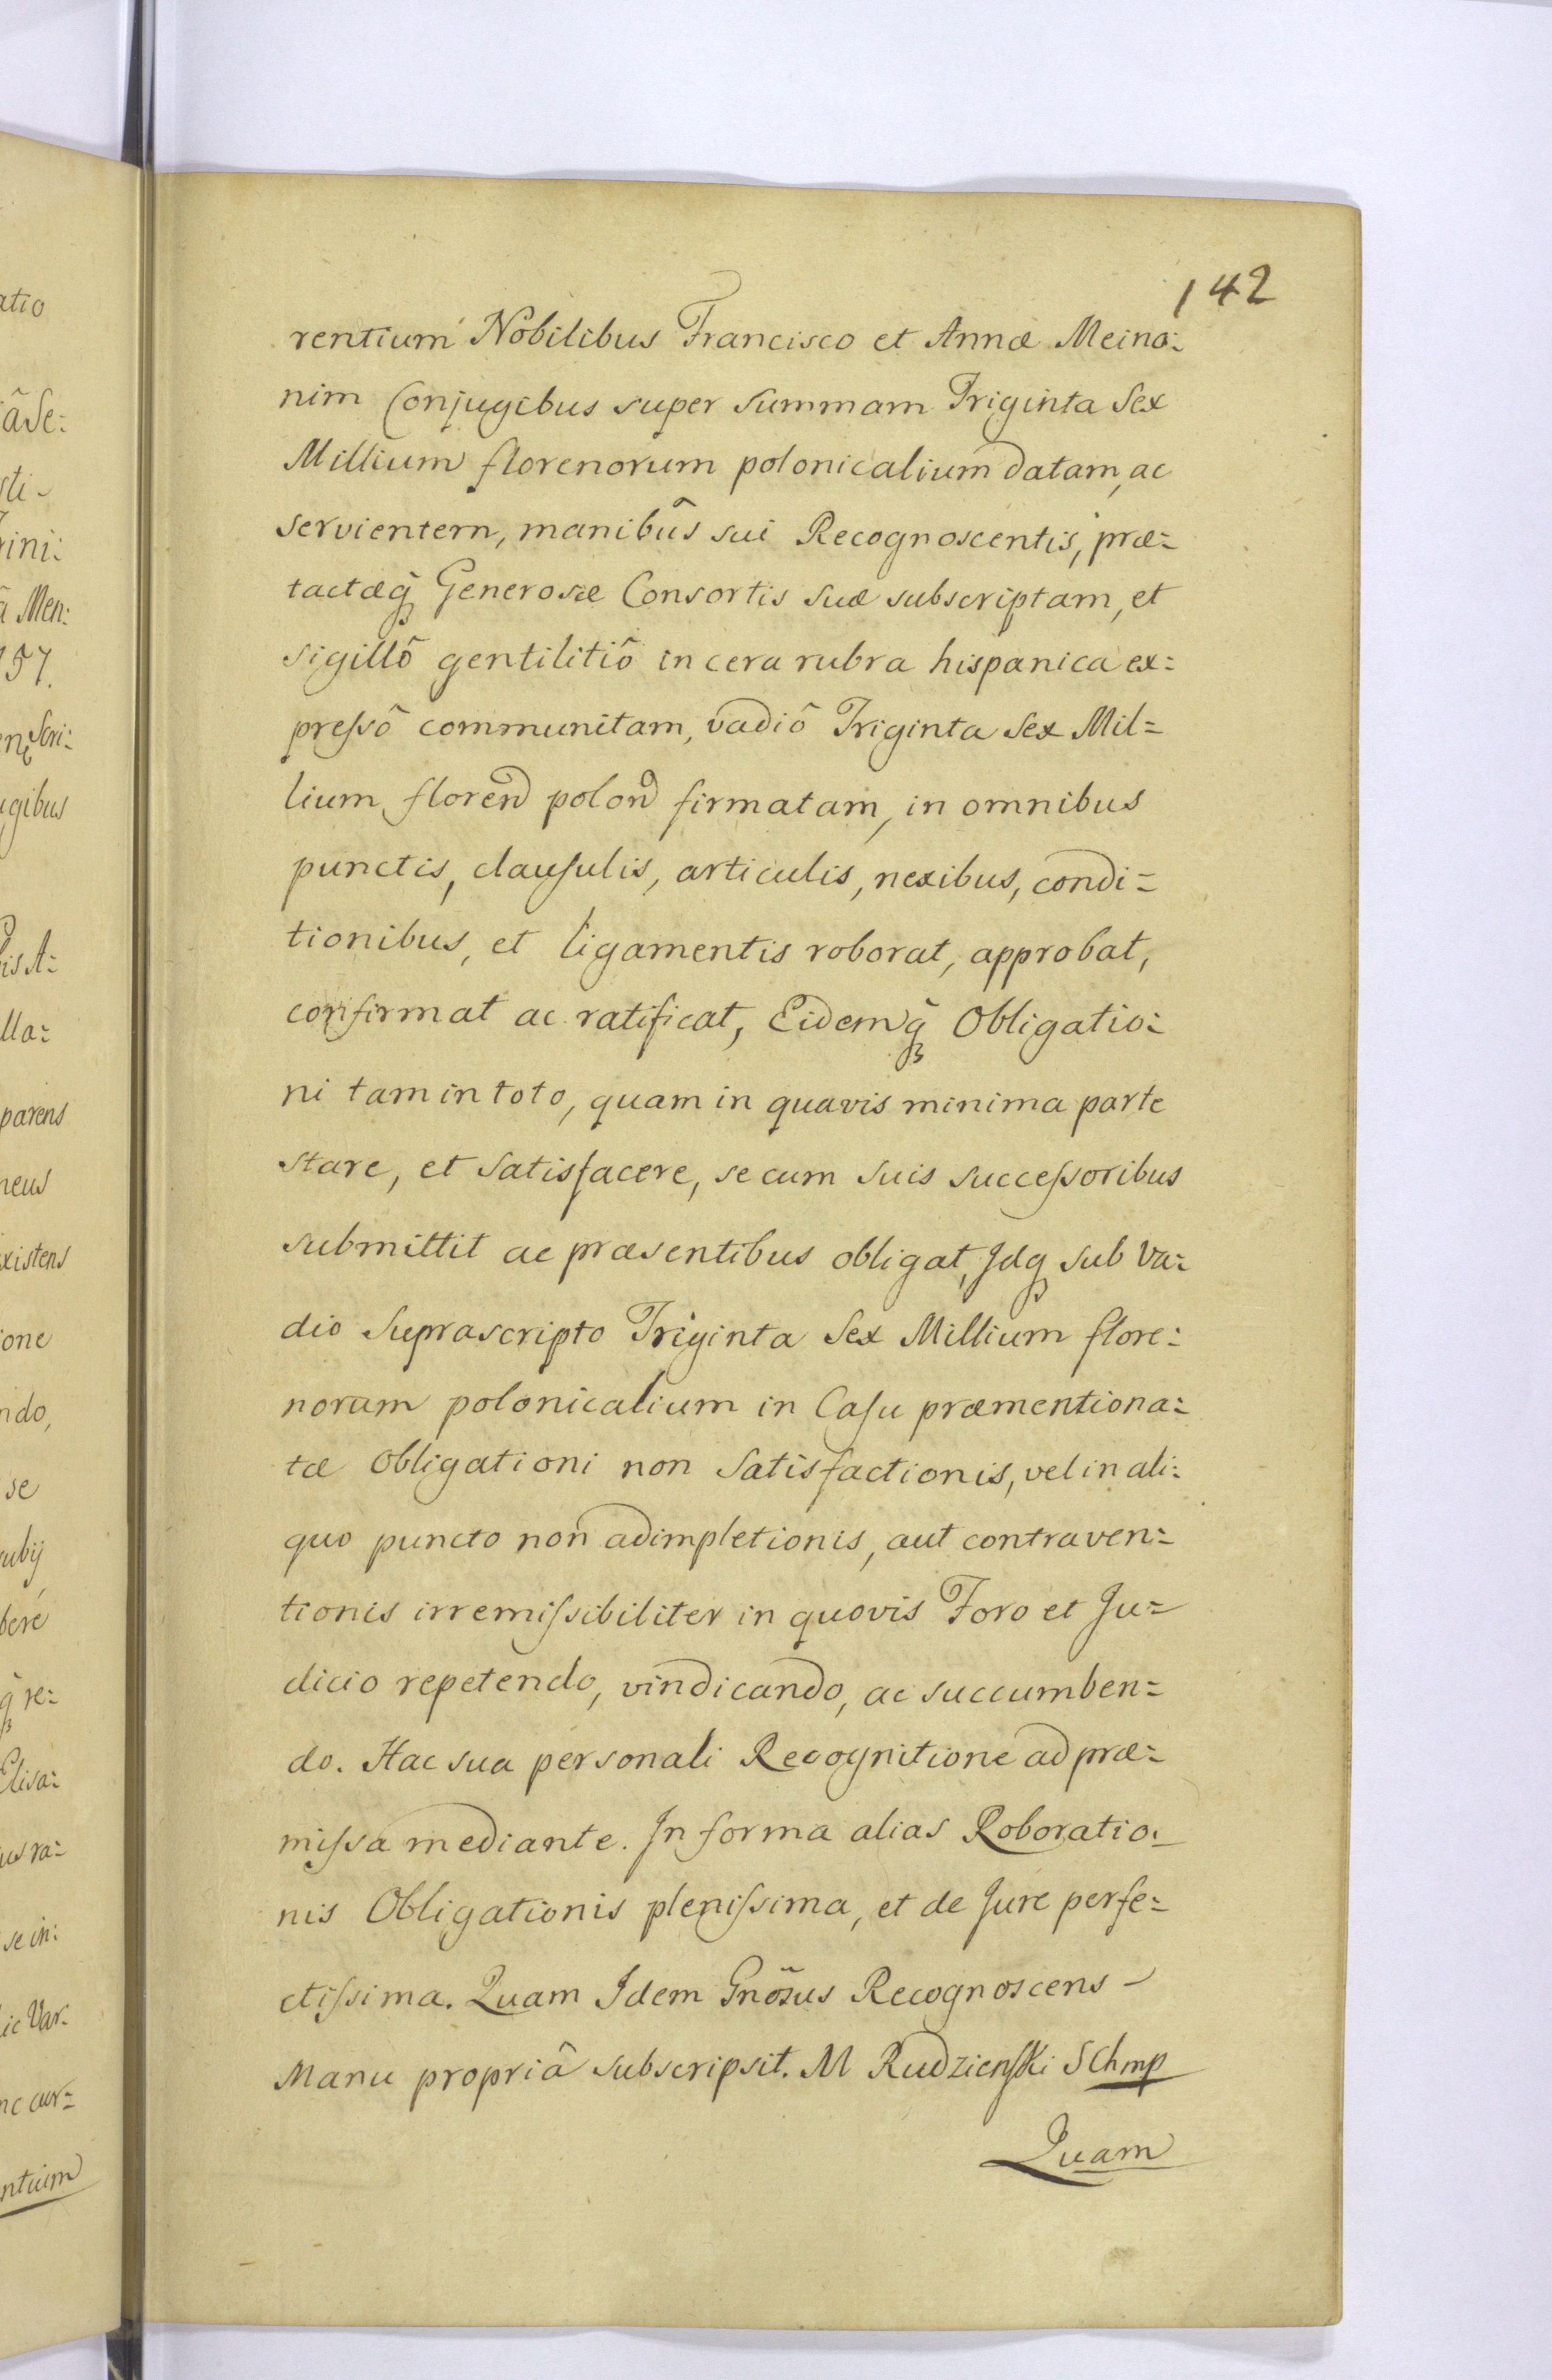 142
rentium Nobilibus Francisco et Annæ Meino:
nim Conjugibus super summam Triginta Sex
Millium florenorum polonicalium datam, ac
servientem, manibûs sui Recognoscentis, præ=
tactæq̃ Generosæ Consortis suæ subscriptam, et
sigillô gentilitiô in cera rubra hispanica ex=
preſsô communitam, vadiô Triginta Sex Mil=
lium floren polon firmatam, in omnibus
punctis, clauſulis, articulis, nexibus, condi=
tionibus, et ligamentis roborat, approbat,
confirmat ac ratificat, Eidemq̃ Obligatio:
ni tam in toto, quam in quavis minima parte
stare, et satisfacere, se cum suis succeſsoribus
submittit ac præsentibus obligat, Jdq sub Va:
dio Suprascripto Triginta Sex Millium flore:
norum polonicalium in Caſu præmentiona:
tæ Obligationi non Satisfactionis, vel in ali:
quo puncto non adimpletionis, aut contraven:
tionis irremiſsibiliter in quovis Foro et Ju=
dicio repetendo, vindicando, ac succumben=
do. Hac sua personali Recognitione ad præ=
miſsa mediante. Jn forma alias Roboratio:
nis Obligationis pleniſsima, et de Jure perfe=
ctiſsima. Quam Jdem Gnõsus Recognoscens
Manu propriâ subscripsit. M Rudzienſki SChmp
Quam
atio
157
ugibus
parens
existens
ione
ndo,
se